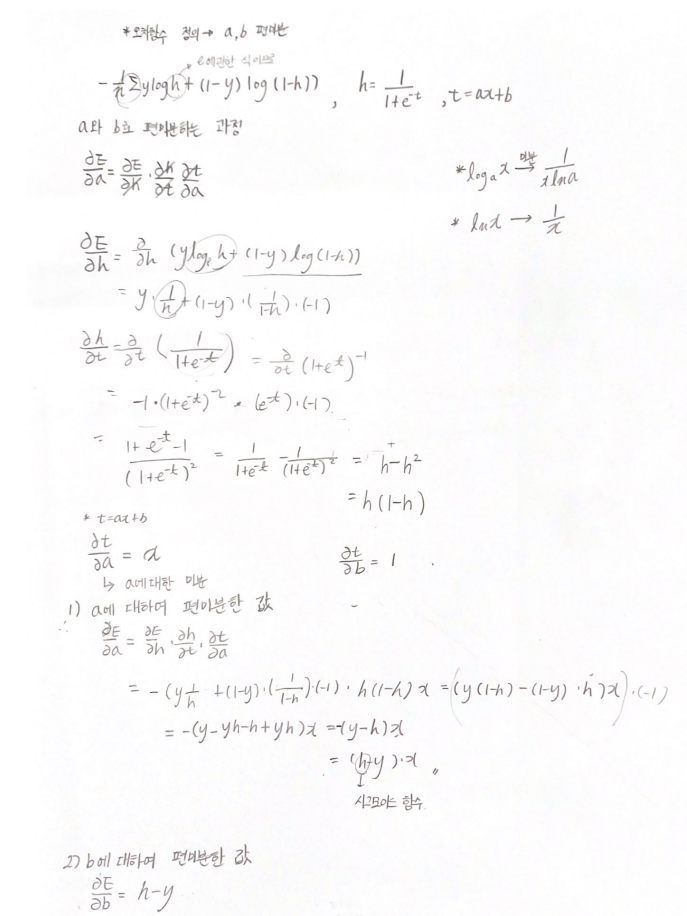 *오차함수 정의→ a,b 편미분
e에관한 식이므로
-1/n Σylogh + (1-y) log (1-h)) , h= 1/(1+e^-t) , t=ax+b
a와 b로 편미분하는 과정
∂E/∂a = ∂E/∂h · ∂h/∂t · ∂t/∂a
*log_a x 미분→ 1/(xlna)
* lnx → 1/x
∂E/∂h = ∂/∂h (ylog_e h + (1-y) log(1-h))
= y · 1/h + (1-y) · (1/(1-h)) · (-1)
∂h/∂t = ∂/∂t (1/(1+e^-t)) = ∂/∂t (1+e^-t)^-1
= -1·(1+e^-t)^-2 · (e^-t)·(-1)
= (1+e^-t-1)/(1+e^-t)^2 = 1/(1+e^-t) - 1/(1+e^-t)^2 = h-h^2
= h(1-h)
* t=ax+b
∂t/∂a = x ∂t/∂b = 1
↳ a에대한 미분
1) a에 대하여 편미분한 값
∴ ∂E/∂a = ∂E/∂h · ∂h/∂t · ∂t/∂a
= -(y 1/h + (1-y)·(1/(1-h))·(-1) · h(1-h) x = (y(1-h) - (1-y) · h)x)·(-1)
= -(y-yh-h+yh)x = -(y-h)x
= (h-y)·x 〃
시그모이드 함수
2) b에 대하여 편미분한 값
∂E/∂b = h-y